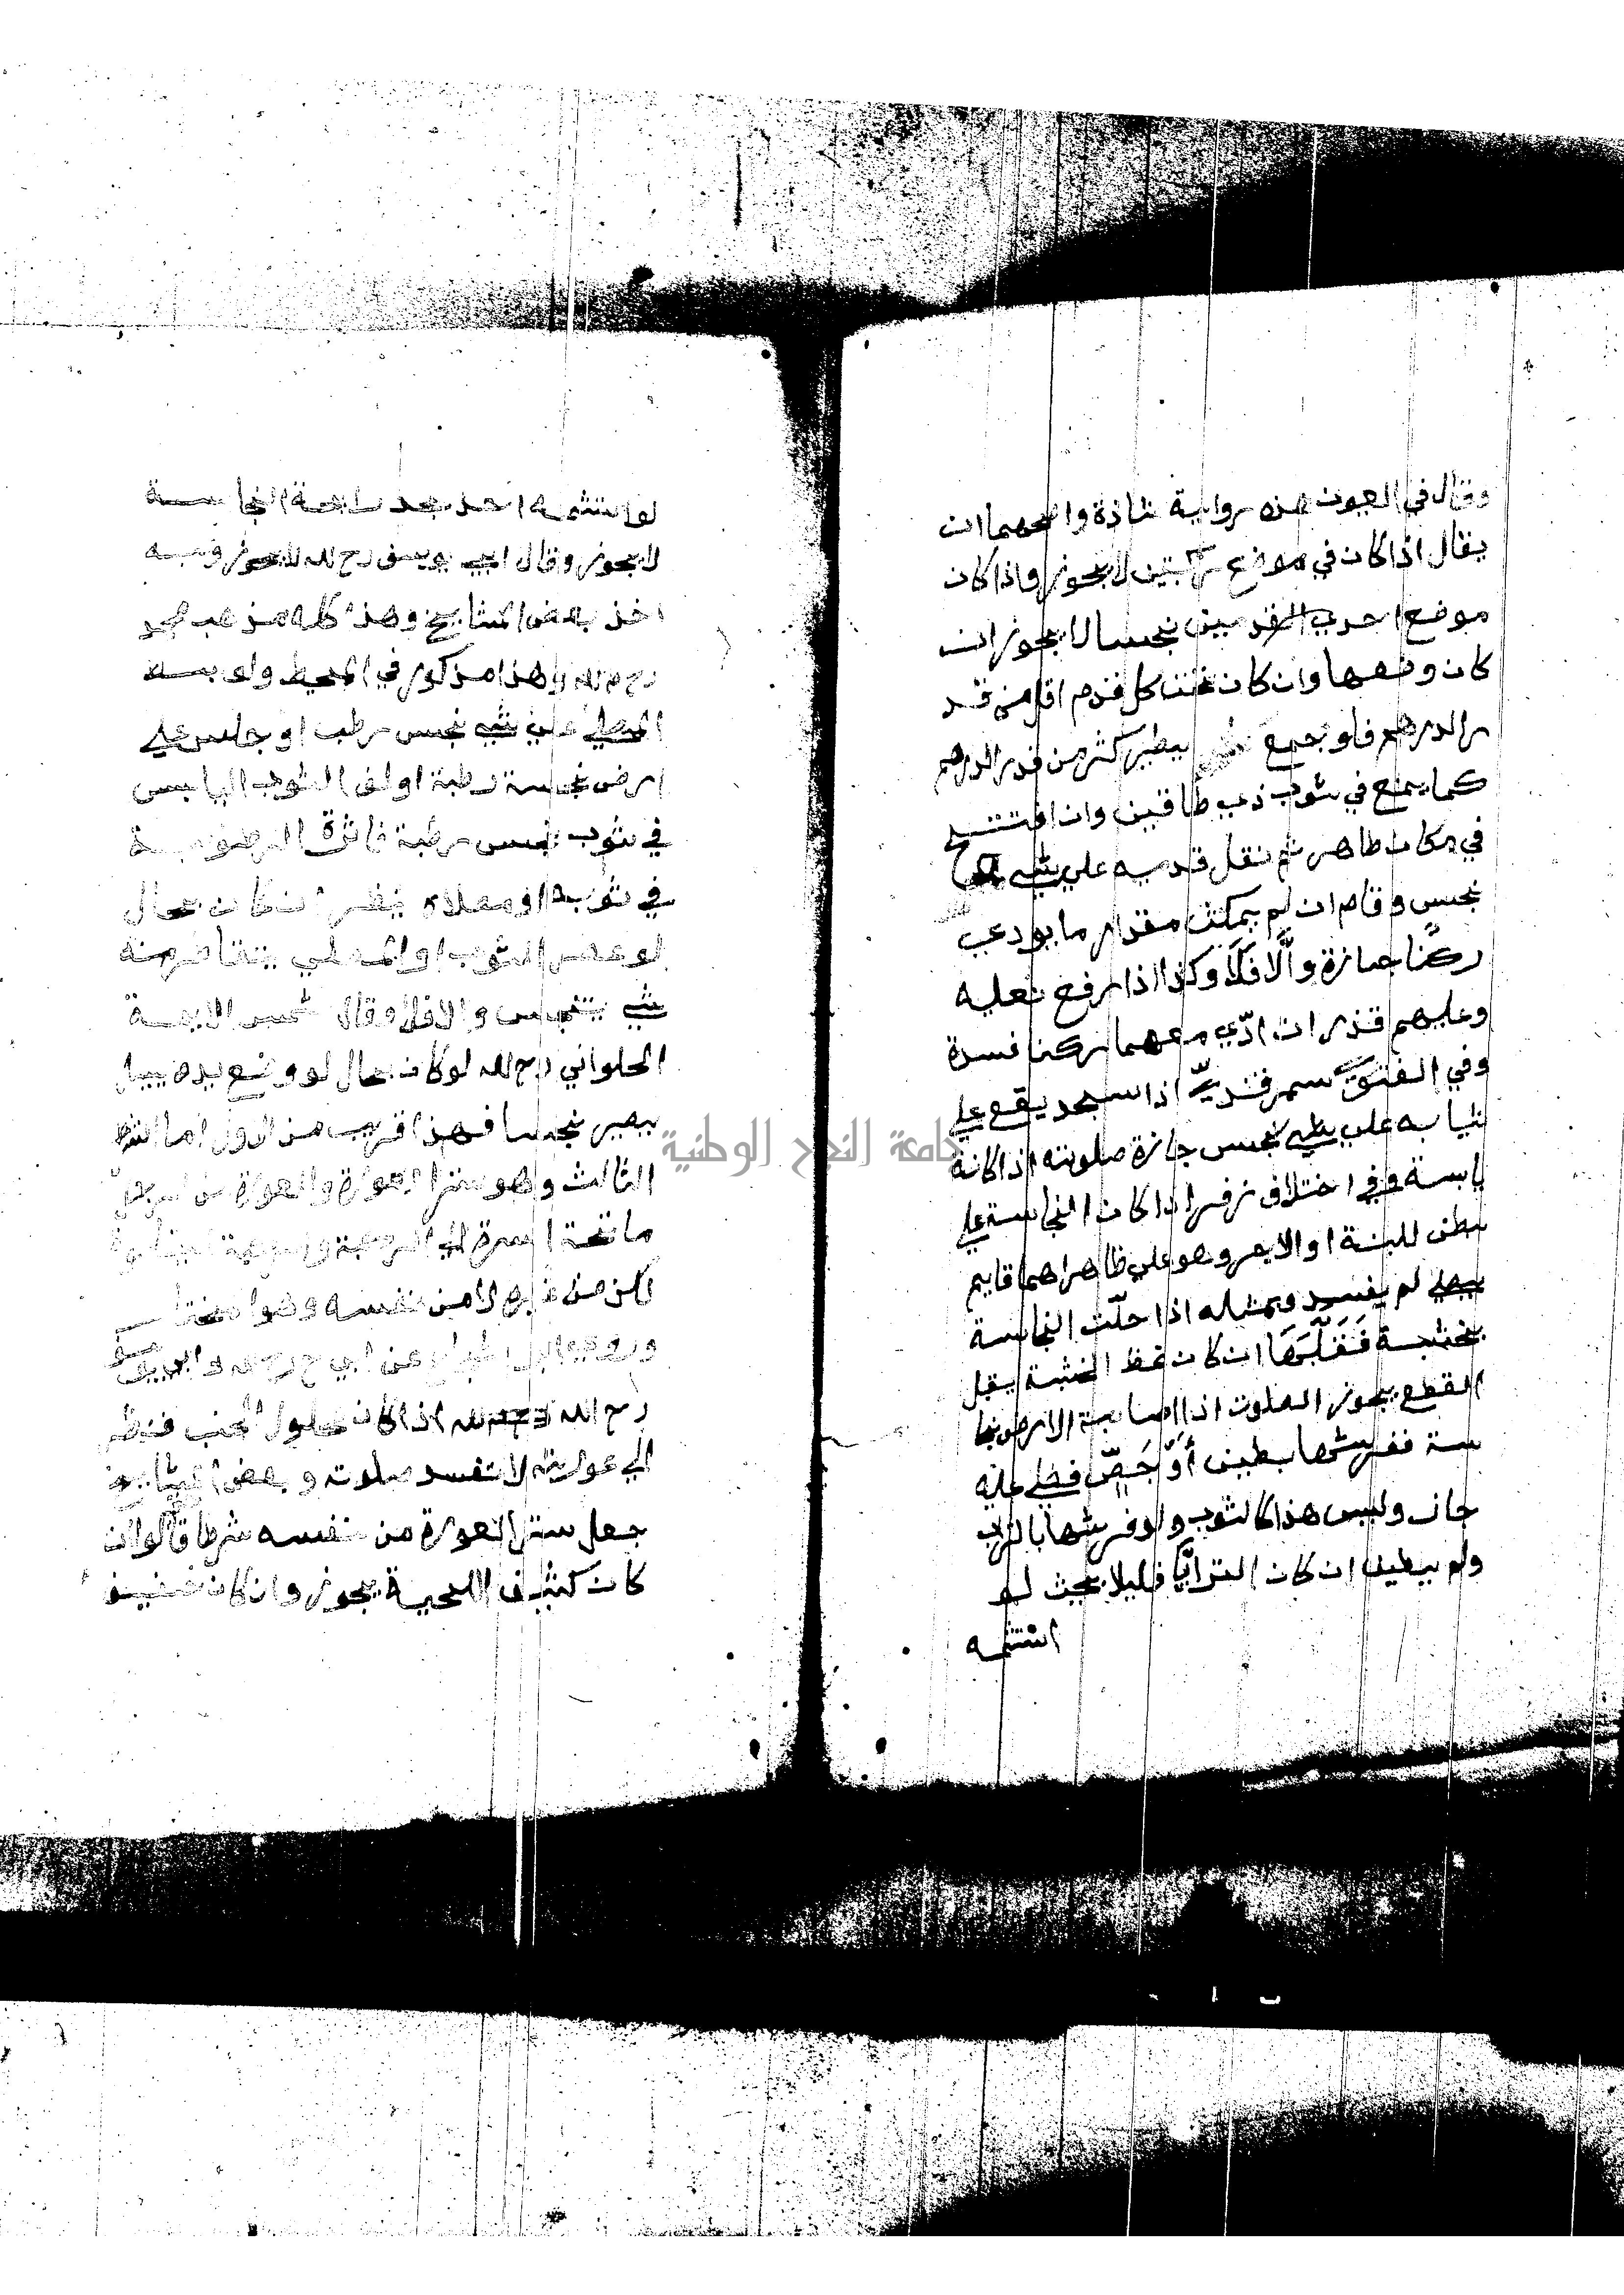 وقال في العيون هذه رواية شاذة واصحهما ان
يقال اذا كان في موضع ركبتين لا يجوز واذا كان
موضع احدي القدمين نجسا لا يجوز ان
كان وضعها وان كان تحت كل قدم اقل من قد
ر الدرهم فلو جمع يصير كثر من قدر الدرهم
كما يمنع في ثوب ذي طاقين وان افتتح
في مكان طاهر ثم نقل قدميه علي شي
نجس وقام ان لم يمكث مقدار ما يودي
ركنًا جازة والّا فلا وكذا اذا رفع نعليه
وعليهم قذر ان ادّي معهما ركنا فسدة
وفي الفتوي سمرقنديّ اذا سجد يقع علي
ثيابه علي شي نجس جازة صلوته اذا كانة
يابسة وفي اختلاف زفر اذا كان النجاسة علي
بطن اللبنة او الاجر وهو علي ظاهراهما قايم
يصلي لم يفسد وبمثله اذا حلّت النجاسة
بخشبة فَقَلَّبَهَا ان كان غلظ الخشبة يقبل
القطع يجوز الصلوت اذا اصابة الارض نجا
سة ففرشها بطين أوْ جَصٍّ فصلي عليه
جاز وليس هذا كالثوب ولو فرشها بالتراب
ولم يطين ان كان الترابًا قليلا بحيث لو
استشمه
لو استشمه احد يجد رايحة النجاسة
لا يجوز وقال ابي يوسف رح لله لا يجوز وبه
اخذ بعض المشايخ وهذا كله مذهب محمد
رحم لله وهذا مذكور في المحيط ولو بسط
المصلي علي شي نجس رطب او جلس علي
ارض نجسة رطبة او لف الثوب اليابس
في ثوب نجس رطبة فاثرة الرطوبة
في ثوبه او مصلاه ينظر ان كان بحال
لو عصر الثوب او المصلي يتقاطر منه
شي يتنجس والا فلا وقال شمس الايمة
الحلواني رح لله لو كان بحال لو وضع يده يبتل
يصير نجسا فهذا قريب من الاول اما الشرط
الثالث وهو ستر العورة والعورة من الرجل
ما تحة السرة الي الركبة
لكن من غيره لا من نفسه وهو المختار
وروي ابن شجاع عن ابي ح رح لله و ابي يوسف
رح الله اذا كان محلول الجيب فنظر
الي عورته لا تفسد صلوته وبعض المشايخ
جعل ستر العورة من نفسه شرطا قالو ان
كان كثيف اللحية يجوز وان كان خفيف
جامعة النجاح الوطنية